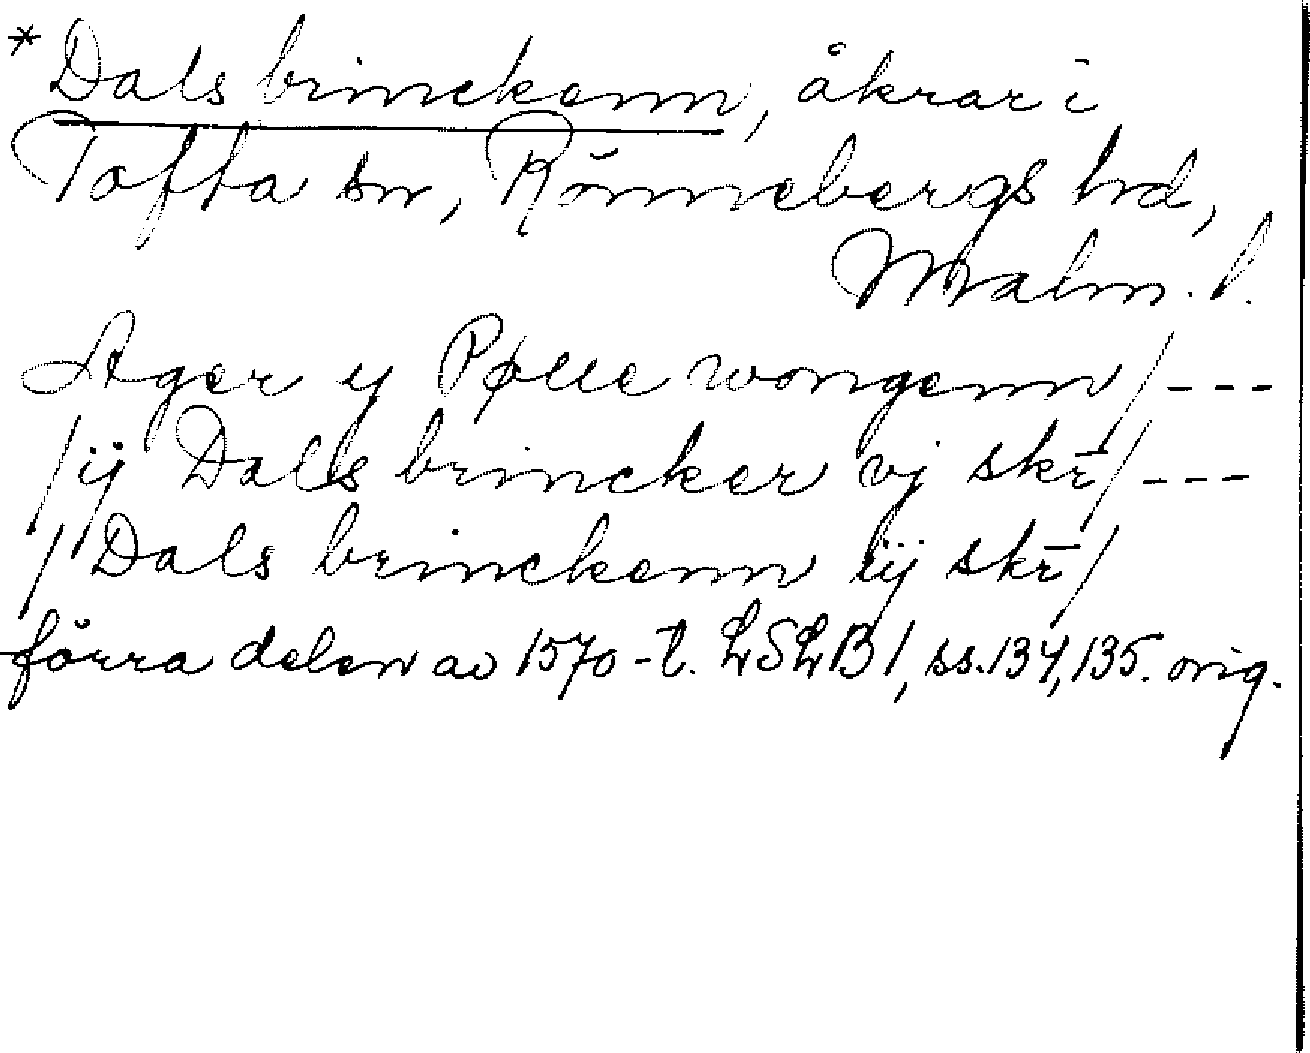 * Dals brinckenn, åkrar i
Tofta sn, Rönnebergs hd,
Malm. l.
Ager y Pølle wongenn /---
/ ij Dals brincker vj skr̄ /---
/ Dals brinckenn iij skr̄ /
förra delen av 1570-t. LSLB 1, ss. 134, 135. orig.